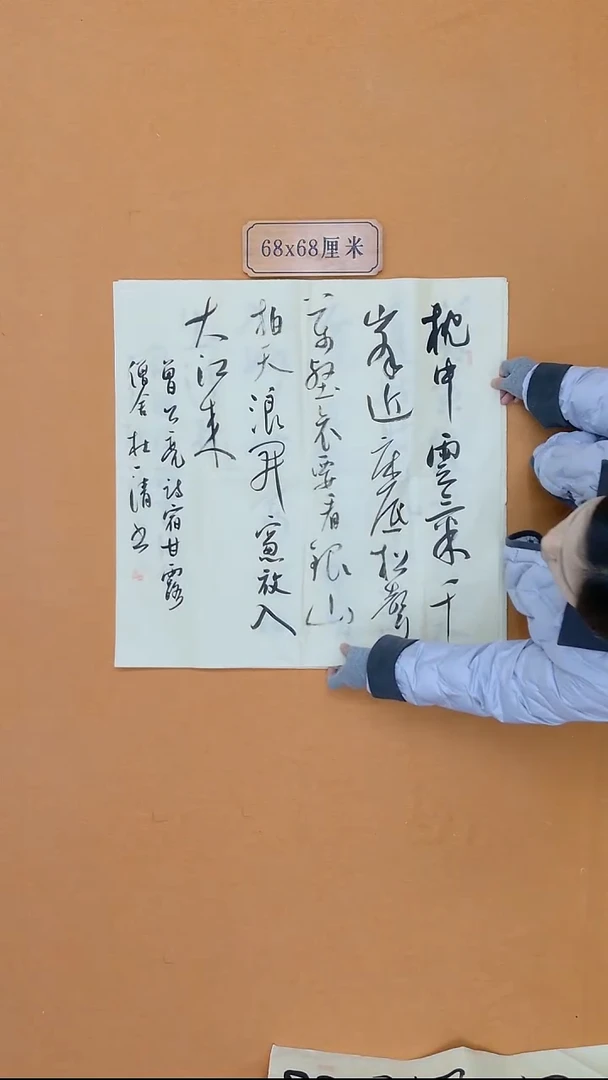 68x68厘米
枕中雲氣千
峯近床底松聲
萬壑哀要看銀山
拍天浪開窻放入
大江来
曾公亮诗宿甘露
僧舍 杜清书